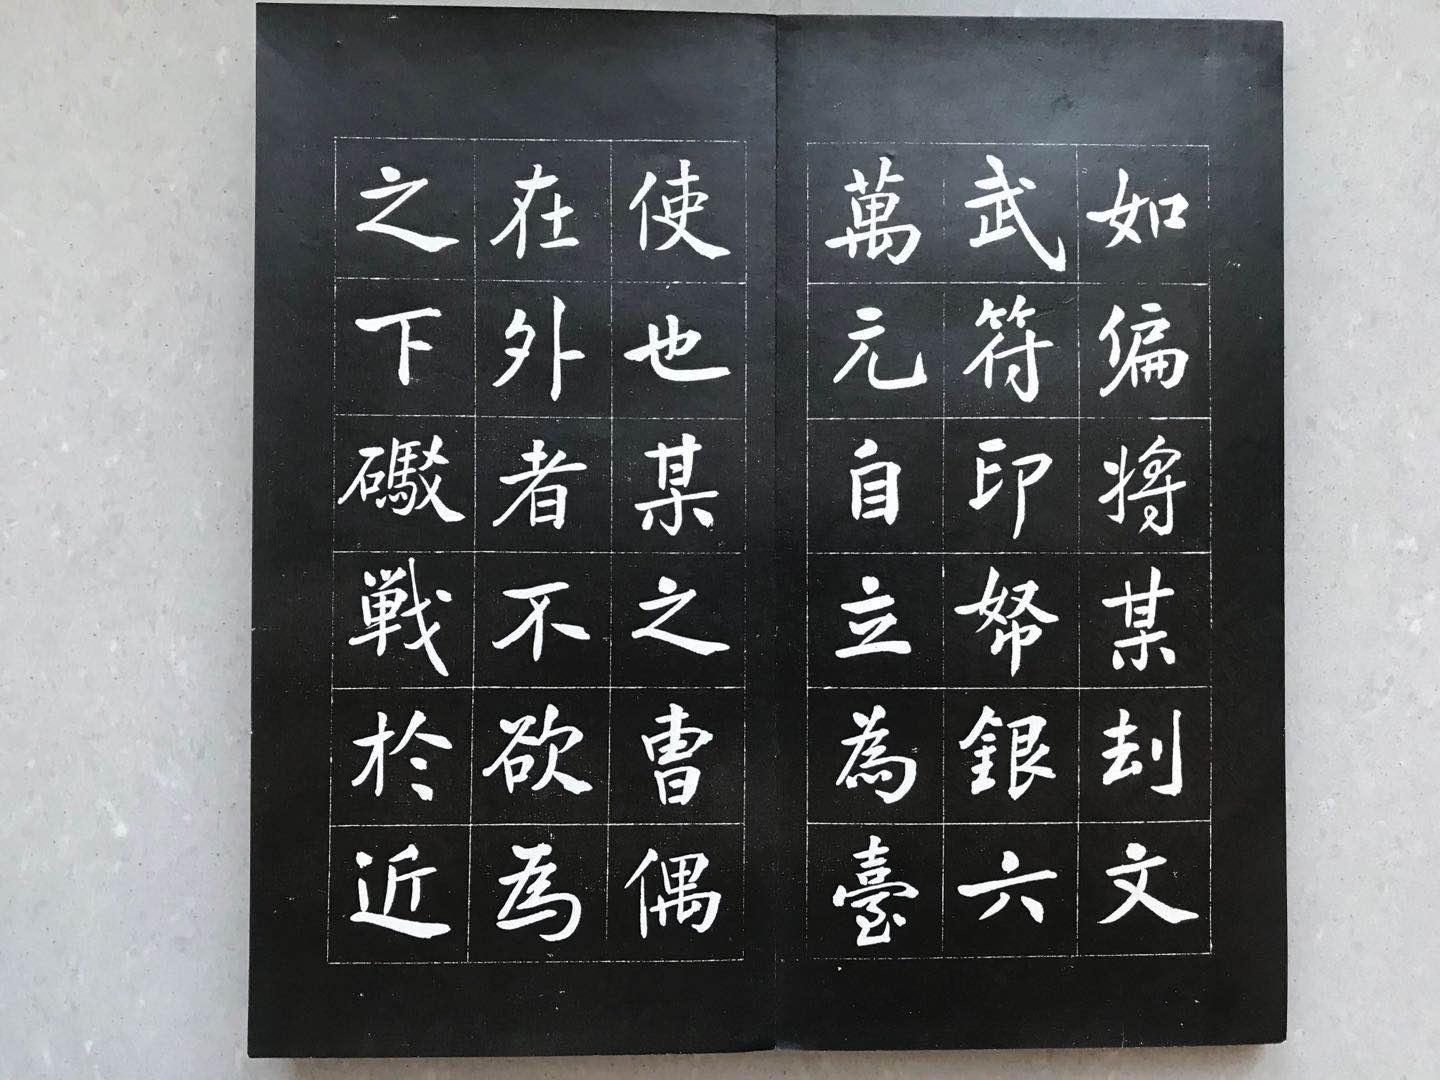 如偏將某刦文
武符印帑銀六
萬元自立為臺
使也某之曺偶
在外者不欲為
之下礮戦於近